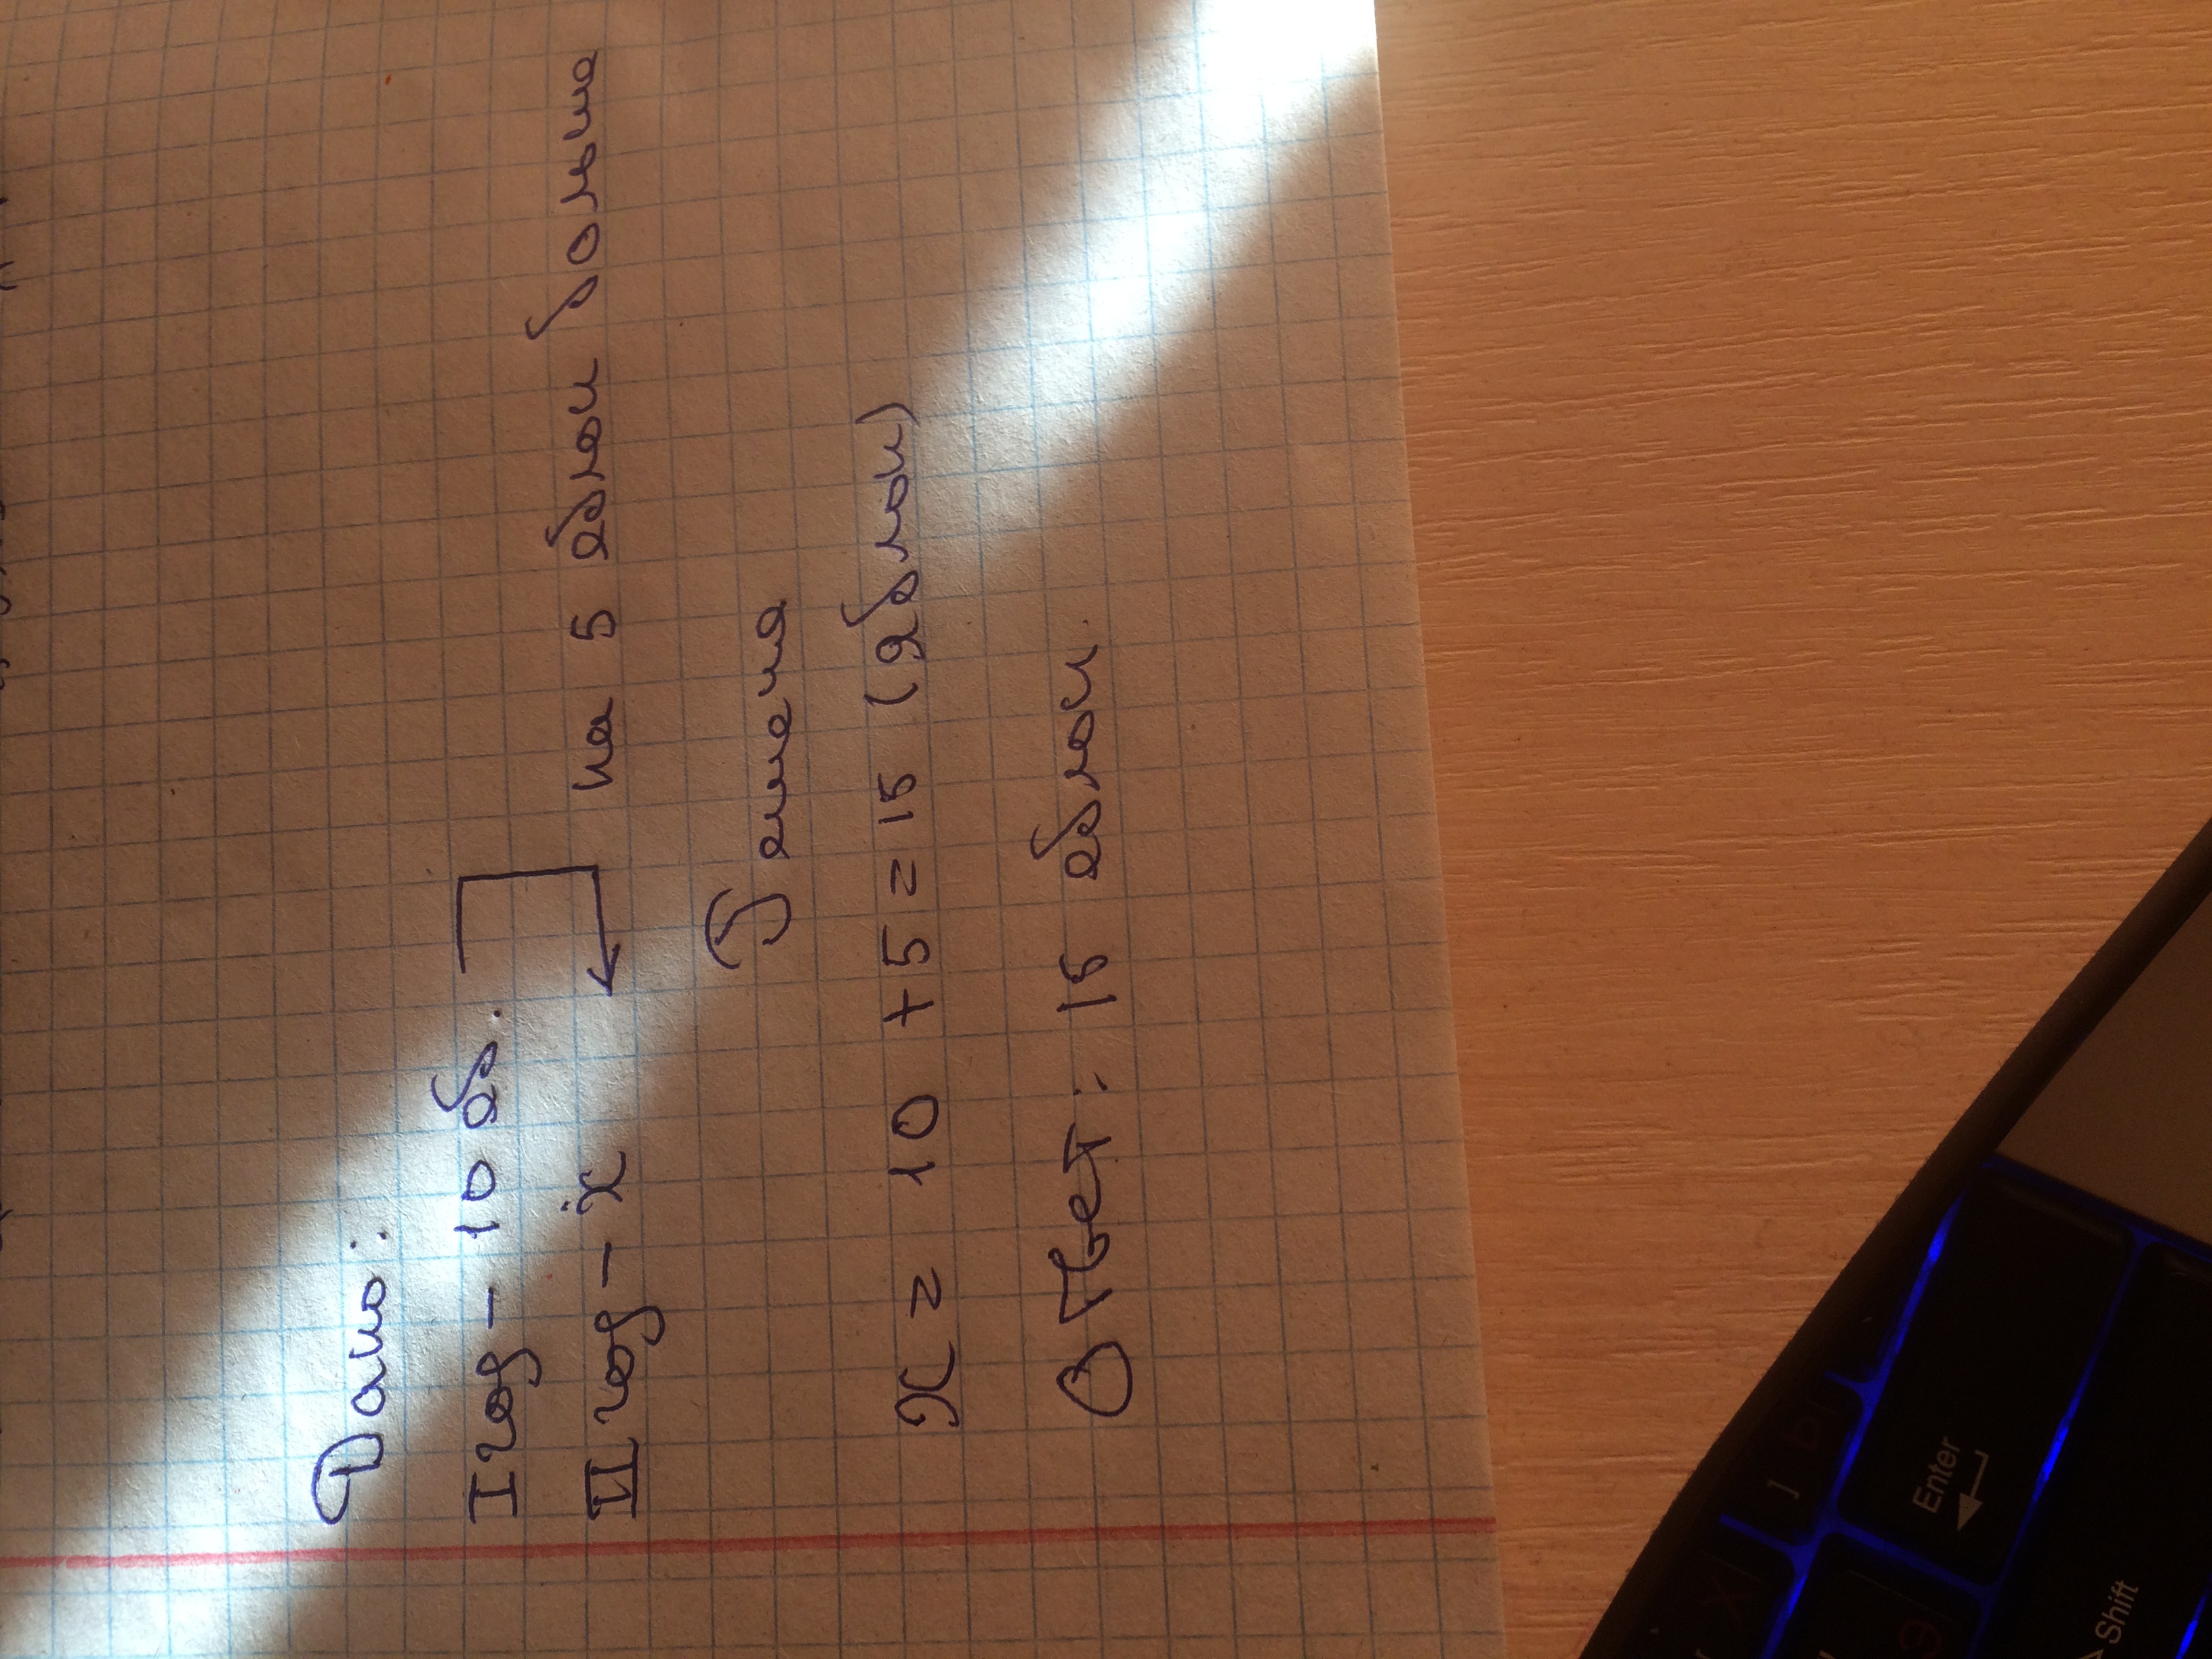 Дано:
I год - 10 яб.
II год - x на 5 яблок больше
Решения
x = 10 + 5 = 15 (яблок)
Ответ: 15 яблок.
Enter
Shift